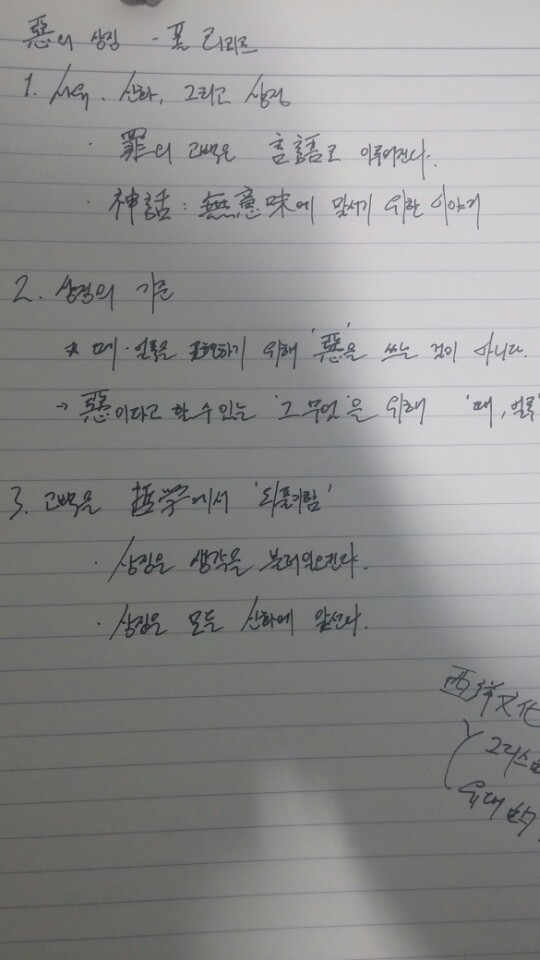 惡의 상징 - 폴 리쾨르
1. 사유, 신화, 그리고 상징
· 罪의 고백은 言語로 이루어진다.
· 神話 : 無意味에 맞서기 위한 이야기
2. 상징의 기준
* 때·얼룩을 표현하기 위해 '惡'을 쓰는 것이 아니다.
→ 惡이라고 할 수 있는 '그 무엇'을 위해 '때, 얼룩'
3. 고백을 哲学에서 '되풀이함'
· 상징은 생각을 불러일으킨다.
· 상징은 모든 신화에 앞선다.
西洋文化
그리스
유대